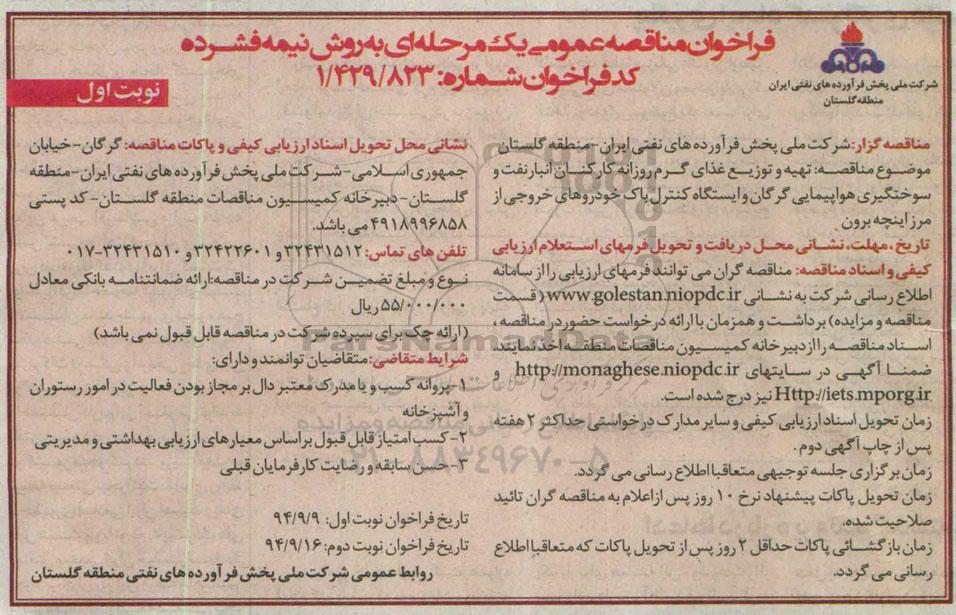 فراخوان مناقصه عمومی یک مرحله‌ای به روش نیمه فشرده
کد فراخوان شماره: ۱/۴۲۹/۸۲۳
شرکت ملی پخش فرآورده های نفتی ایران
منطقه گلستان
نوبت اول
مناقصه گزار: شرکت ملی پخش فرآورده های نفتی ایران- منطقه گلستان
موضوع مناقصه: تهیه و توزیع غذای گرم روزانه کارکنان انبار نفت و
سوختگیری هواپیمایی گرگان و ایستگاه کنترل باک خودروهای خروجی از
مرز اینچه برون
تاریخ، مهلت، نشانی محل دریافت و تحویل فرمهای استعلام ارزیابی
کیفی و اسناد مناقصه: مناقصه گران می توانند فرمهای ارزیابی را از سامانه
اطلاع رسانی شرکت به نشانی www.golestan.niopdc.ir (قسمت
مناقصه و مزایده) برداشت و همزمان با ارائه درخواست حضور در مناقصه،
اسناد مناقصه را از دبیرخانه کمیسیون مناقصات منطقه اخذ نمایند.
ضمنا آگهی در سایتهای http://monaghese.niopdc.ir و
Http://iets.mporg.ir نیز درج شده است.
زمان تحویل اسناد ارزیابی کیفی و سایر مدارک درخواستی حداکثر ۲ هفته
پس از چاپ آگهی دوم.
زمان برگزاری جلسه توجیهی متعاقبا اطلاع رسانی می گردد.
زمان تحویل پاکات پیشنهاد نرخ ۱۰ روز پس از اعلام به مناقصه گران تائید
صلاحیت شده.
زمان بازگشائی پاکات حداقل ۲ روز پس از تحویل پاکات که متعاقبا اطلاع
رسانی می گردد.
نشانی محل تحویل اسناد ارزیابی کیفی و پاکات مناقصه: گرگان- خیابان
جمهوری اسلامی- شرکت ملی پخش فرآورده های نفتی ایران- منطقه
گلستان- دبیرخانه کمیسیون مناقصات منطقه گلستان- کد پستی
۴۹۱۸۹۹۶۸۵۸ می باشد.
تلفن های تماس: ۳۲۴۳۱۵۱۲ و ۳۲۴۲۲۶۰۱ و ۳۲۴۳۱۵۱۰-۰۱۷
نوع و مبلغ تضمین شرکت در مناقصه: ارائه ضمانتنامه بانکی معادل
۵۵/۰۰۰/۰۰۰ ریال
(ارائه چک برای سپرده شرکت در مناقصه قابل قبول نمی باشد)
شرایط متقاضی: متقاضیان توانمند و دارای:
۱- پروانه کسب و یا مدرک معتبر دال بر مجاز بودن فعالیت در امور رستوران
و آشپزخانه
۲- کسب امتیاز قابل قبول بر اساس معیارهای ارزیابی بهداشتی و مدیریتی
۳- حسن سابقه و رضایت کارفرمایان قبلی
تاریخ فراخوان نوبت اول: ۹۴/۹/۹
تاریخ فراخوان نوبت دوم: ۹۴/۹/۱۶
روابط عمومی شرکت ملی پخش فرآورده های نفتی منطقه گلستان
ParsNamadData
۰۲۱-۸۸۳۴۹۶۷۰-۵